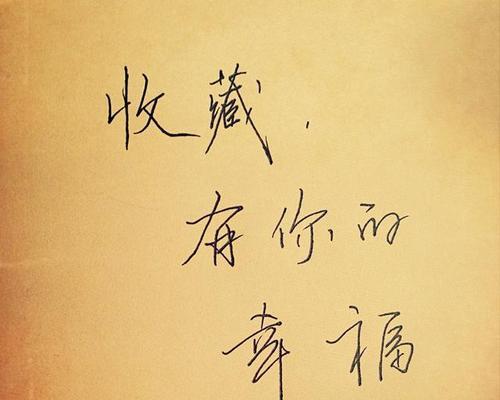 收藏,
有你的
幸福